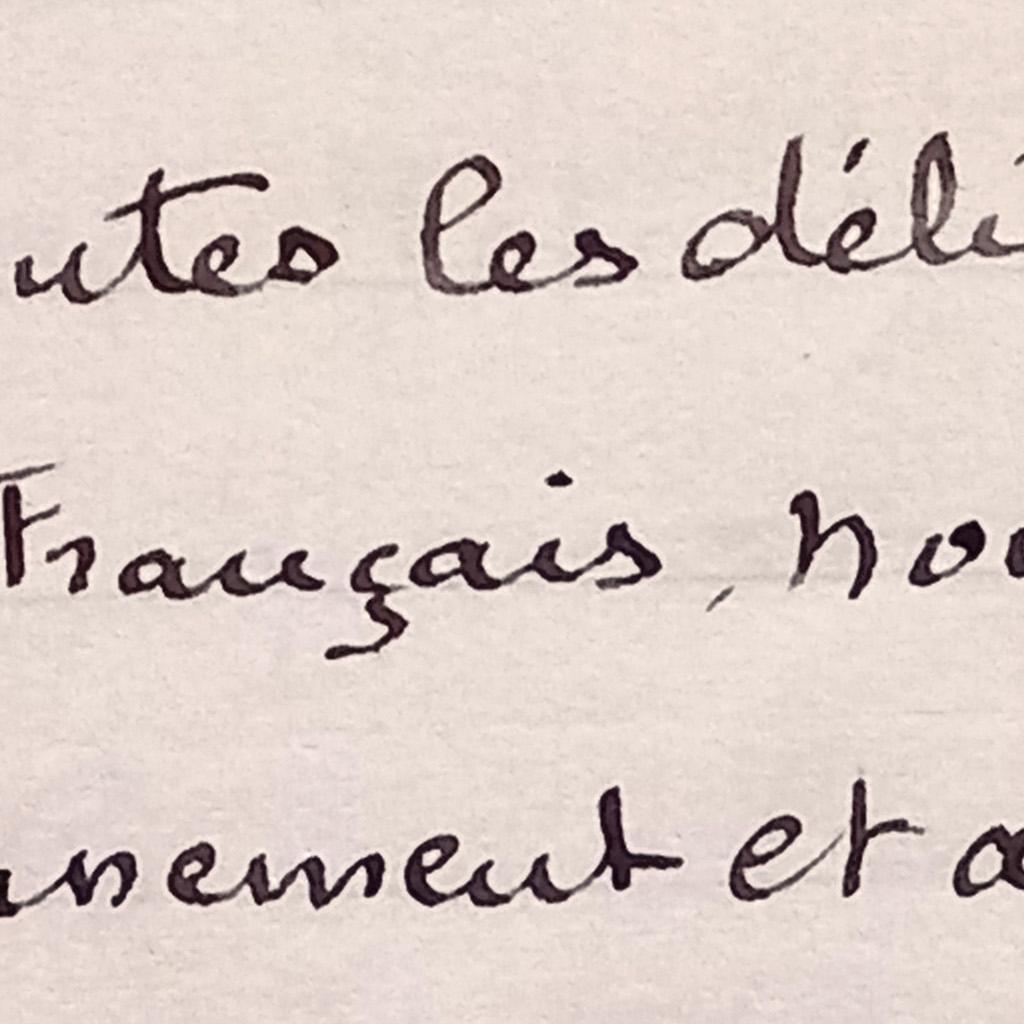 utes les déli
Français, nou
nement et a